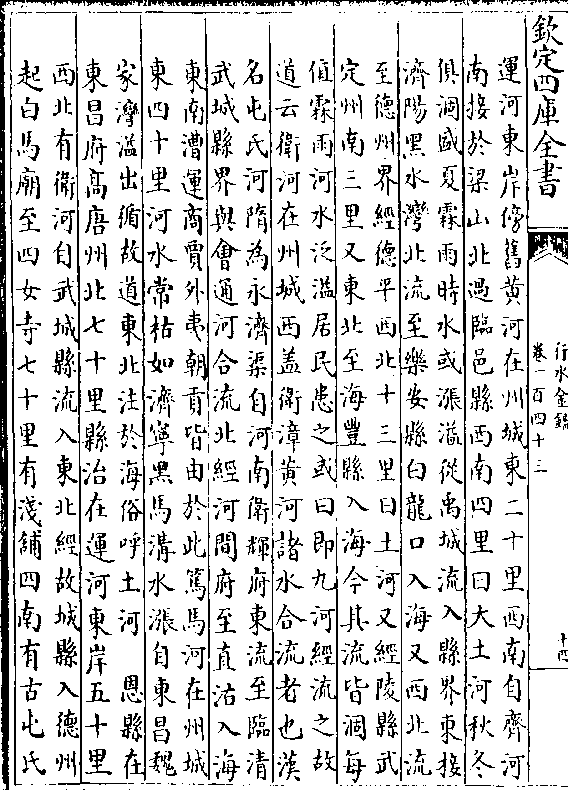 欽定四庫全書
行水金鑑
卷一百四十三
十四
運河東岸傍舊黄河在州城東二十里西南自齊河
南接於梁山北過臨邑縣西南四里曰大土河秋冬
俱涸盛夏霖雨時水或漲溢從禹城流入縣界東接
濟陽黑水灣北流至樂安縣白龍口入海又西北流
至德州界經德平西北十三里曰土河又經陵縣武
定州南三里又東北至海豐縣入海今其流皆涸每
值霖雨河水泛溢居民患之或曰即九河經流之故
道云衛河在州城西蓋衛漳黄河諸水合流者也漢
名屯氏河隋為永濟渠自河南衛輝府東流至臨清
武城縣界與會通河合流北經河間府至直沽入海
東南漕運商賈外夷朝貢皆由於此篤馬河在州城
東四十里河水常枯如濟寧黑馬溝水漲自東昌魏
家灣溢出循故道東北注於海俗呼土河　恩縣在
東昌府高唐州北七十里縣治在運河東岸五十里
西北有衛河自武城縣流入東北經故城縣入德州
起白馬廟至四女寺七十里有淺舖四南有古屯氏